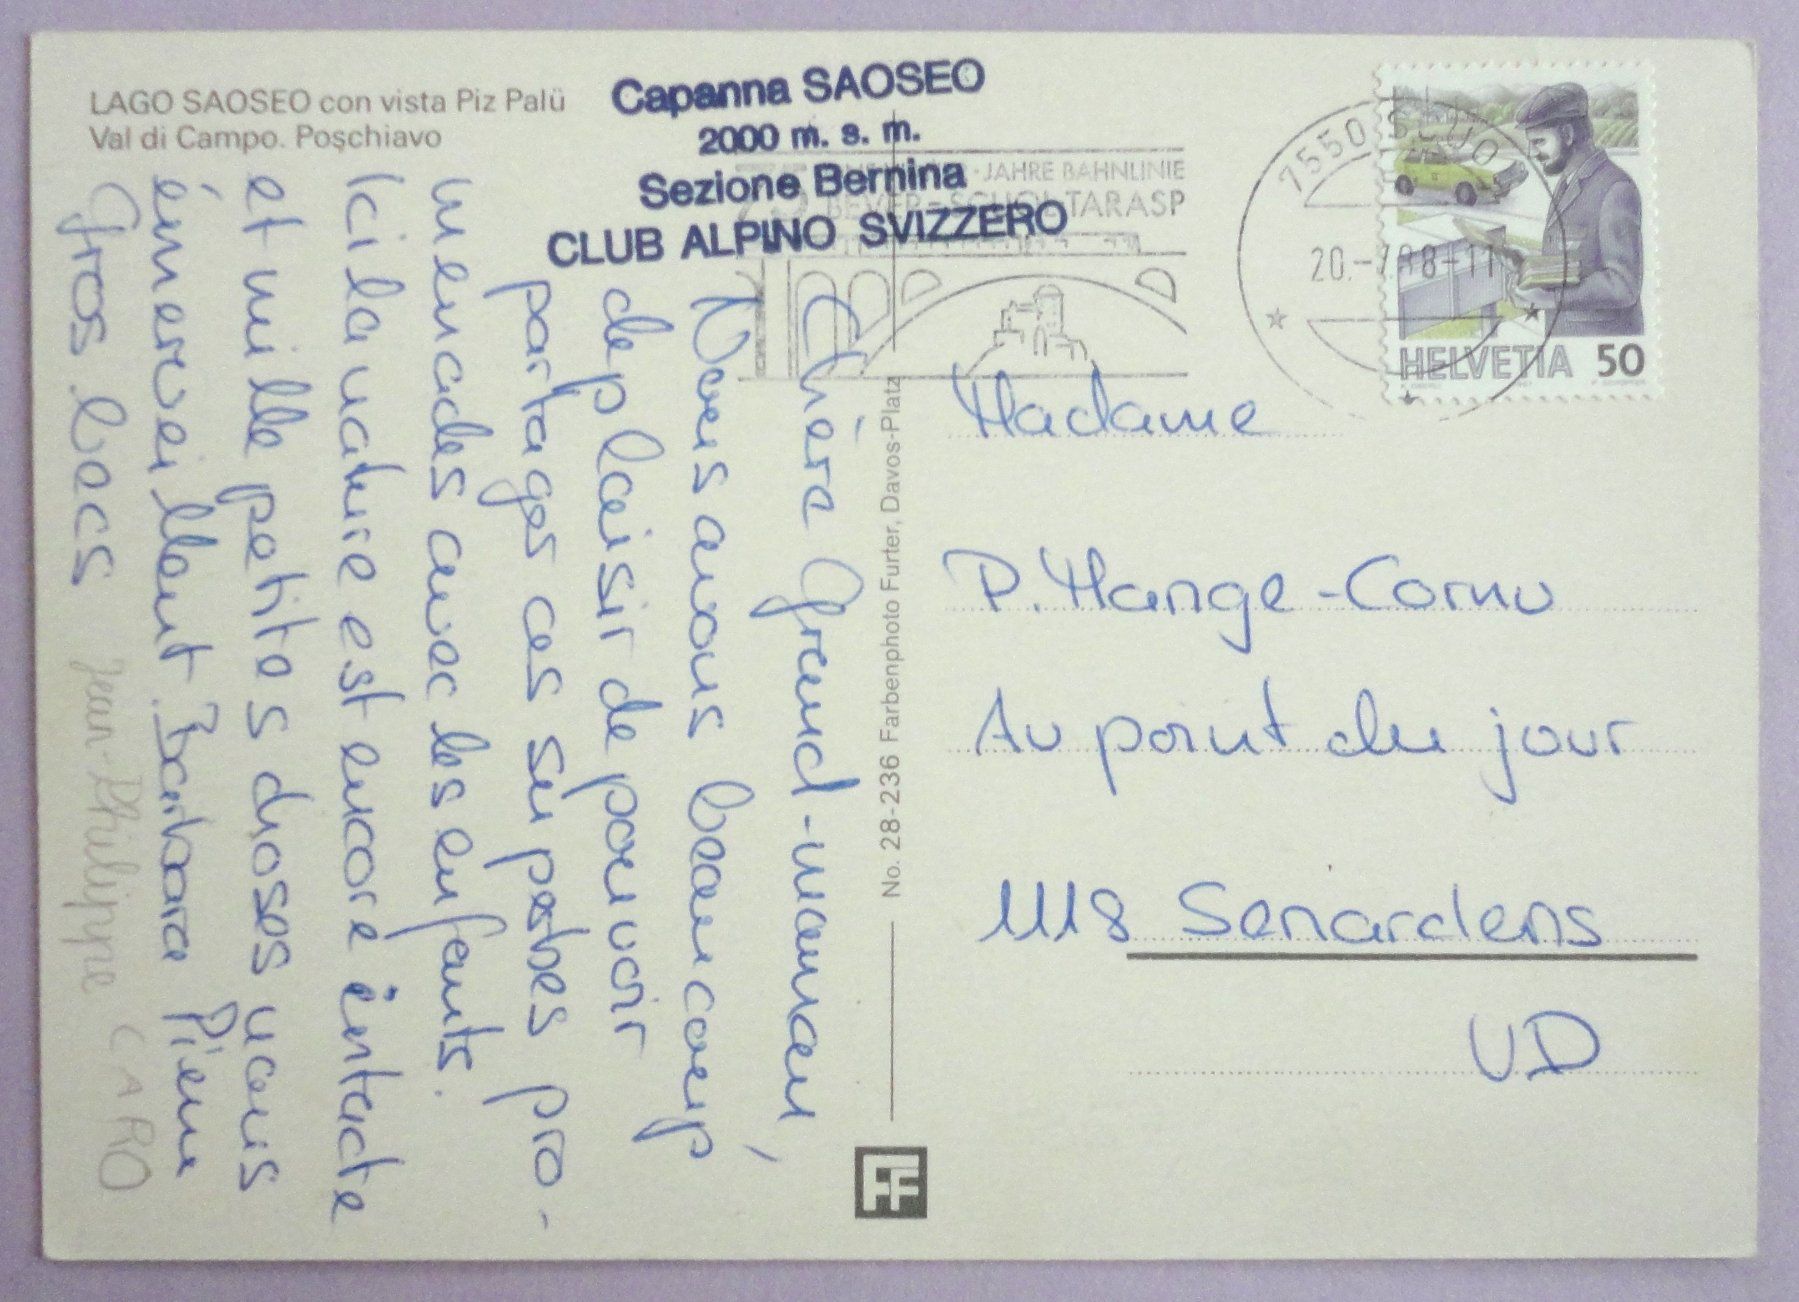 LAGO SAOSEO con vista Piz Palü
Val di Campo. Poschiavo
Capanna SAOSEO
2000 m. s. m.
Sezione Bernina
CLUB ALPINO SVIZZERO
JAHRE BAHNLINIE
BEVER - SCUOL-TARASP
7550 SCUOL
20.-7.88-11
HELVETIA 50
Chère Grand-maman,
Nous avons beaucoup
de plaisir de pouvoir
partager ces superbes pro-
menades avec les enfants.
Ici la nature est encore intacte
et mille petites choses nous
émerveillent. Barbara Pierre
Gros becs Jean-Philippe CARO
No. 28-236 Farbenphoto Furter, Davos-Platz
FF
Madame
P. Mange-Cornu
Au point du jour
1118 Senardens
VD